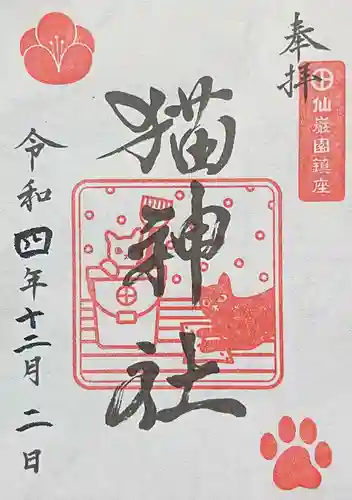 奉拝
仙巌園鎮座
猫神社
令和四年十二月二日